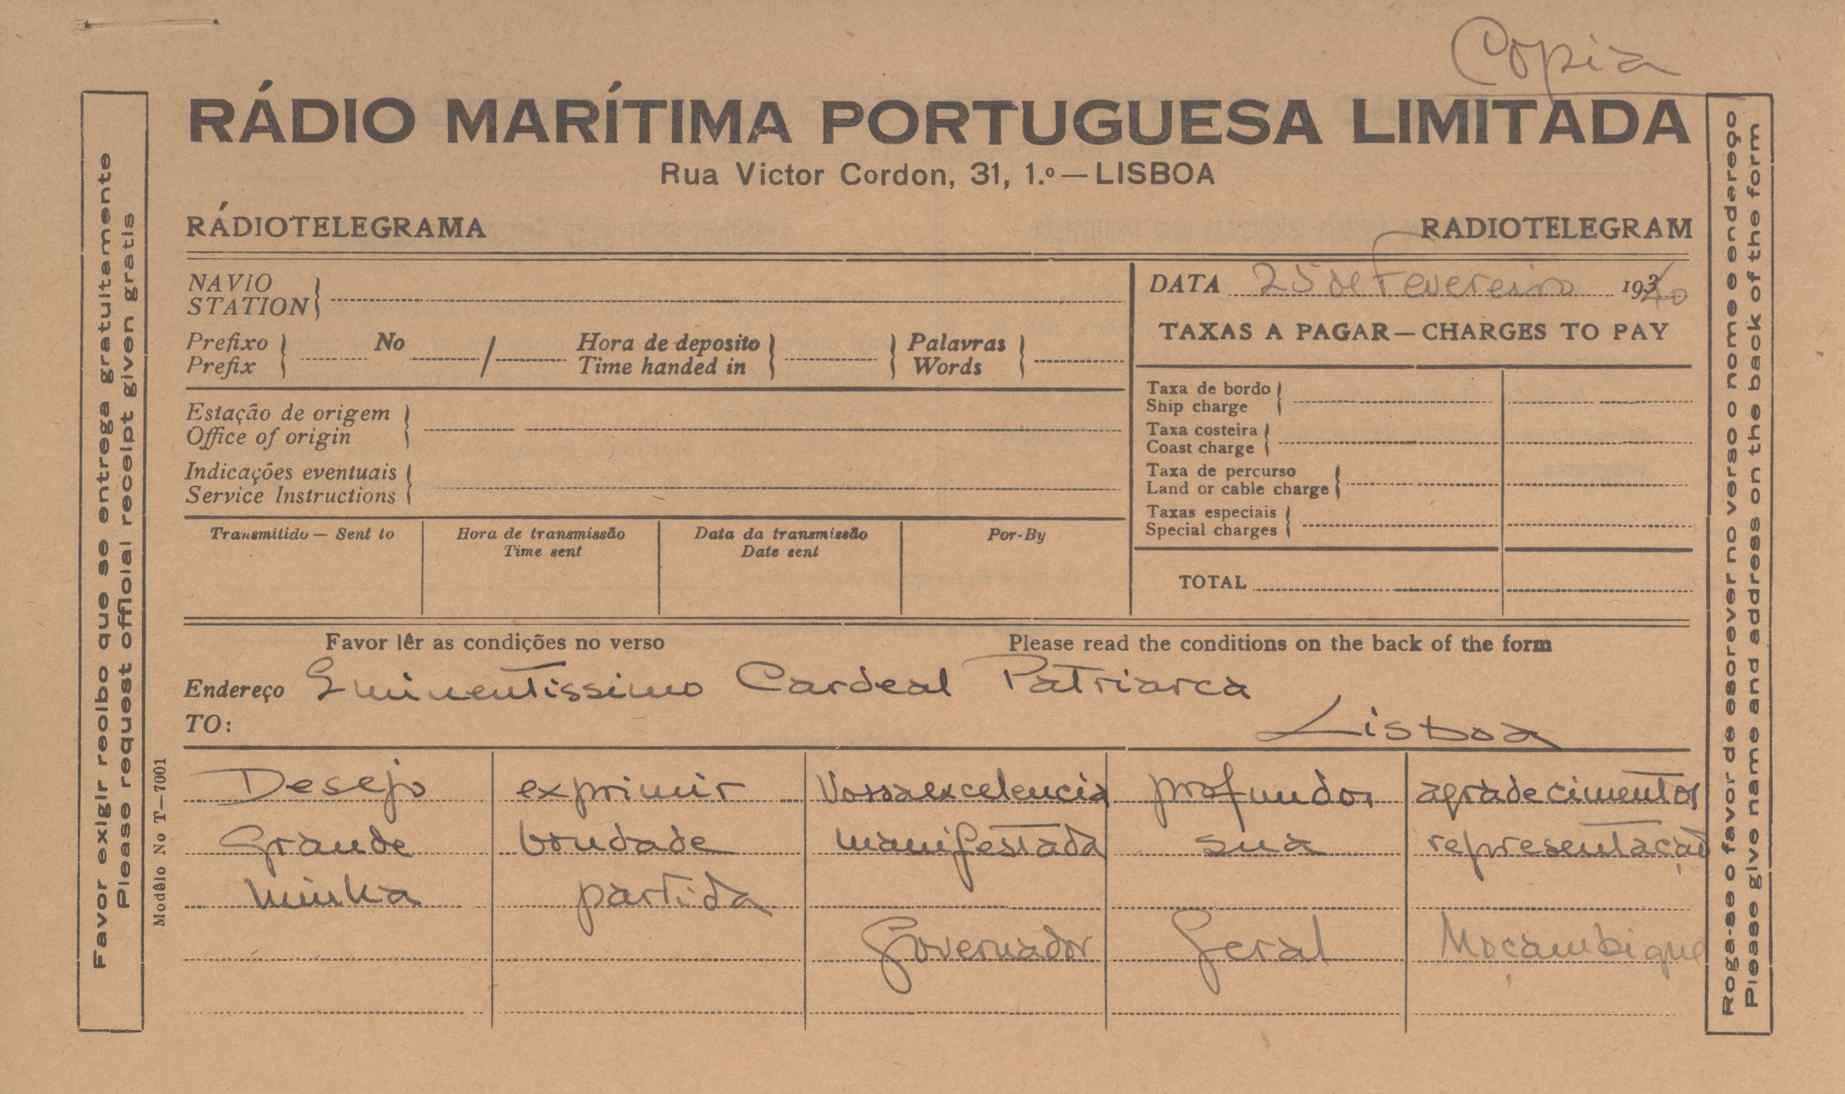 Copia
RÁDIO MARÍTIMA PORTUGUESA LIMITADA
Rua Victor Cordon, 31, 1.º — LISBOA
RÁDIOTELEGRAMA RADIOTELEGRAM
NAVIO
STATION
DATA 25 de Fevereiro 1940
TAXAS A PAGAR — CHARGES TO PAY
Prefixo No / Hora de deposito Palavras
Prefix Time handed in Words
Estação de origem
Office of origin
Indicações eventuais
Service Instructions
Taxa de bordo
Ship charge
Taxa costeira
Coast charge
Taxa de percurso
Land or cable charge
Taxas especiais
Special charges
TOTAL
Transmitido — Sent to Hora de transmissão Data da transmissão Por-By
Time sent Date sent
Favor lêr as condições no verso Please read the conditions on the back of the form
Endereço Eminentissimo Cardeal Patriarca
TO: Lisboa
Desejo exprimir Vossaexcelencia profundos agradecimentos
Grande bondade manifestada sua representação
minha partida
Governador Geral Moçambique
Favor exigir recibo que se entrega gratuitamente
Please request official receipt given gratis
Modêlo No T—7001
Roga-se o favor de escrever no verso o nome e endereço
Please give name and address on the back of the form